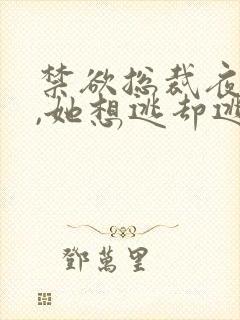 禁欲总裁夜
,她想逃却逃
鄧萬里